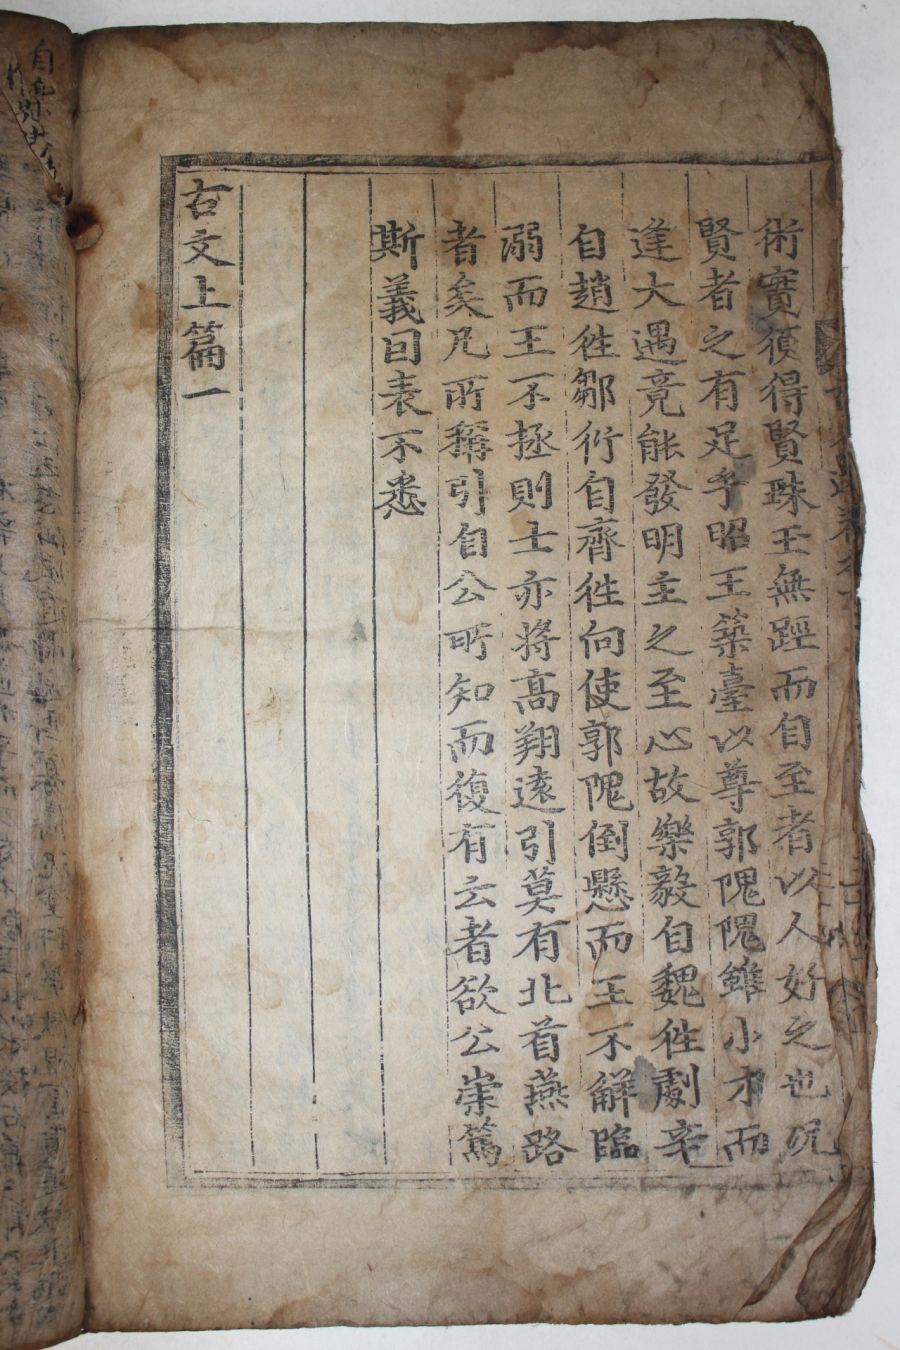 術實須得賢珠玉無踁而自至者以人好之也況
賢者之有足乎昭王築臺以尊郭隗隗雖小才而
逢大遇竟能發明主之至心故樂毅自魏徃劇辛
自趙徃鄒衍自齊徃向使郭隗倒懸而王不解臨
溺而王不拯則士亦將高翔遠引莫有北首燕路
者矣凡所稱引自公所知而復有云者欲公崇篤
斯義因表不悉
古文上篇一